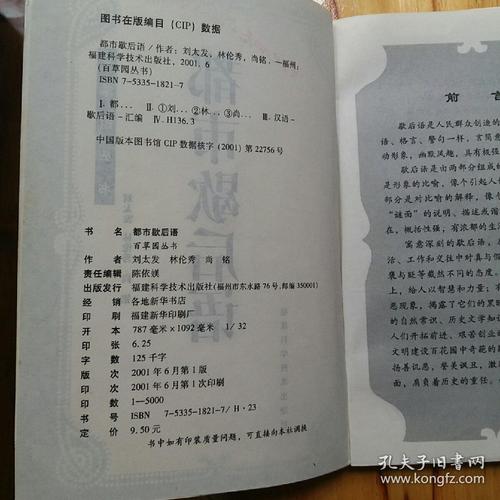 图书在版编目(CIP)数据
都市歇后语/作者:刘太发,林伦秀,尚铭.—福州:
福建科学技术出版社,2001.6
(百草园丛书)
ISBN 7-5335-1821-7
Ⅰ.都… Ⅱ.①刘…②林…③尚… Ⅲ.汉语-
歇后语-汇编 Ⅳ.H136.3
中国版本图书馆CIP数据核字(2001)第22756号
书 名 都市歇后语
百草园丛书
作 者 刘太发 林伦秀 尚 铭
责任编辑 陈依媄
出版发行 福建科学技术出版社(福州市东水路76号,邮编350001)
经 销 各地新华书店
印 刷 福建新华印刷厂
开 本 787毫米×1092毫米 1/32
印 张 6.25
字 数 125千字
版 次 2001年6月第1版
印 次 2001年6月第1次印刷
印 数 1—5000
书 号 ISBN 7-5335-1821-7/H·23
定 价 9.50元
书中如有印装质量问题,可直接向本社调换
前 言
歇后语是人民群众创造的
语、格言、警句一样,言简
动形象,幽默风趣,具有极强
歇后语是由两部分组成的
是形象的比喻,像个引起人
部分是对比喻的解释,像个
“谜面”的说明、描述或谐
在,概括性强,有浓郁的生活
寓意深刻的歇后语,
活、工作和交往中对真与假
褒与贬等截然不同的态度。
上,给人以智慧和力量;有
恶现象,揭露了它们的
的自然常识、历史文学知识
人们开拓前进、艰苦创业的
文明建设百花园中奇葩的
扬善讥恶、赞美讽丑、激
面,肩负着历史的重任。
孔夫子旧书网
www.kongfz.com